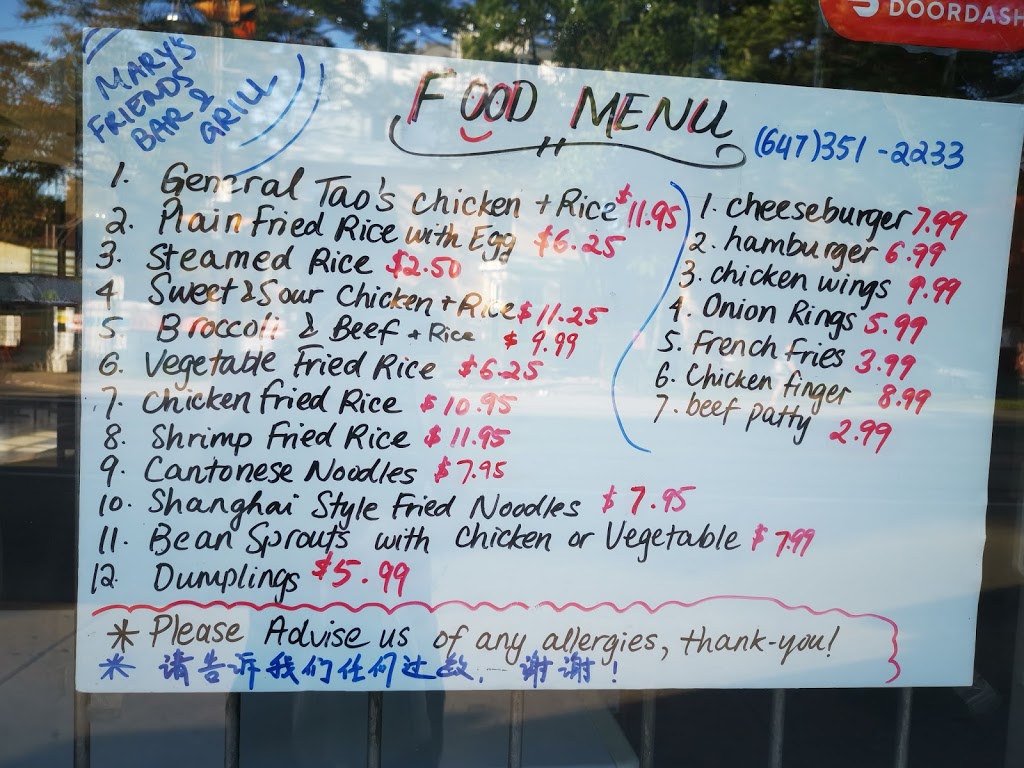 DOORDASH
MARY'S
FRIENDS
BAR &
GRILL
FOOD MENU
(647)351-2233
1. General Tao's chicken + Rice $11.95
2. Plain Fried Rice with Egg $6.25
3. Steamed Rice $2.50
4 Sweet & Sour Chicken + Rice $11.25
5 Broccoli & Beef + Rice $9.99
6. Vegetable Fried Rice $6.25
7. Chicken Fried Rice $10.95
8. Shrimp Fried Rice $11.95
9. Cantonese Noodles $7.95
10. Shanghai Style Fried Noodles $7.95
11. Bean Sprouts with Chicken or Vegetable $7.99
12. Dumplings $5.99
1. cheeseburger 7.99
2. hamburger 6.99
3. chicken wings 9.99
4. Onion Rings 5.99
5. French Fries 3.99
6. Chicken finger 8.99
7. beef patty 2.99
* Please Advise us of any allergies, thank-you!
* 请告诉我们任何过敏,谢谢!